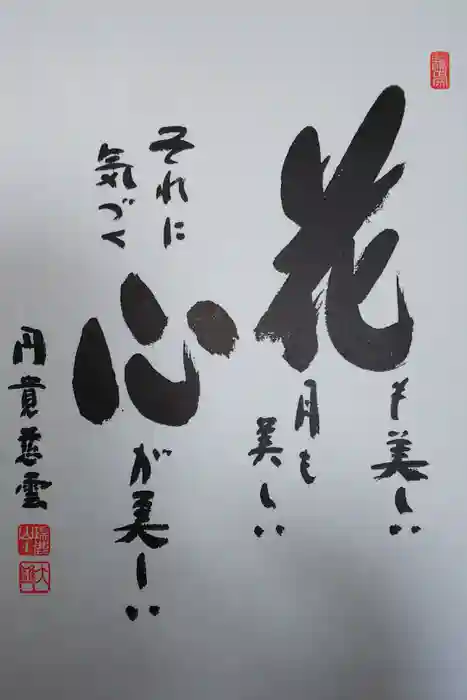 花も美しい
月も
美しい
それに
気づく
心が美しい
円覚慈雲